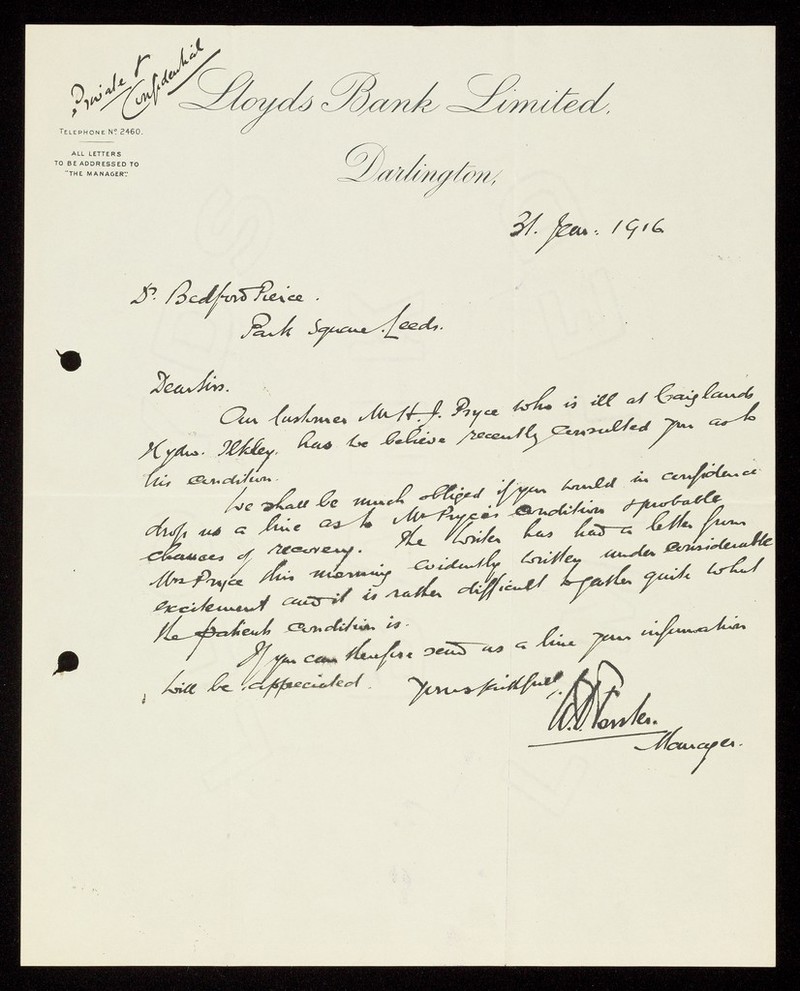 Private &
Confidential
Lloyds Bank Limited,
TELEPHONE Nº 2460.
ALL LETTERS
TO BE ADDRESSED TO
"THE MANAGER".
Darlington,
31. Jan: 1916
Dr. Bedford Pierce.
Park Square. Leeds.
Dear Sirs.
Our Customer Mr H. J. Pryce who is ill at Craiglands
Hydro. Ilkley. has we believe recently consulted you as to
his condition.
We shall be much obliged if you would in confidence
drop us a line as to Mr Pryce's condition & probable
chances of recovery. The writer has had a letter from
Mrs Pryce this morning evidently written under considerable
excitement and it is rather difficult to gather quite what
the patients condition is.
If you can therefore send us a line your information
will be appreciated. Yours faithfully
Manager.